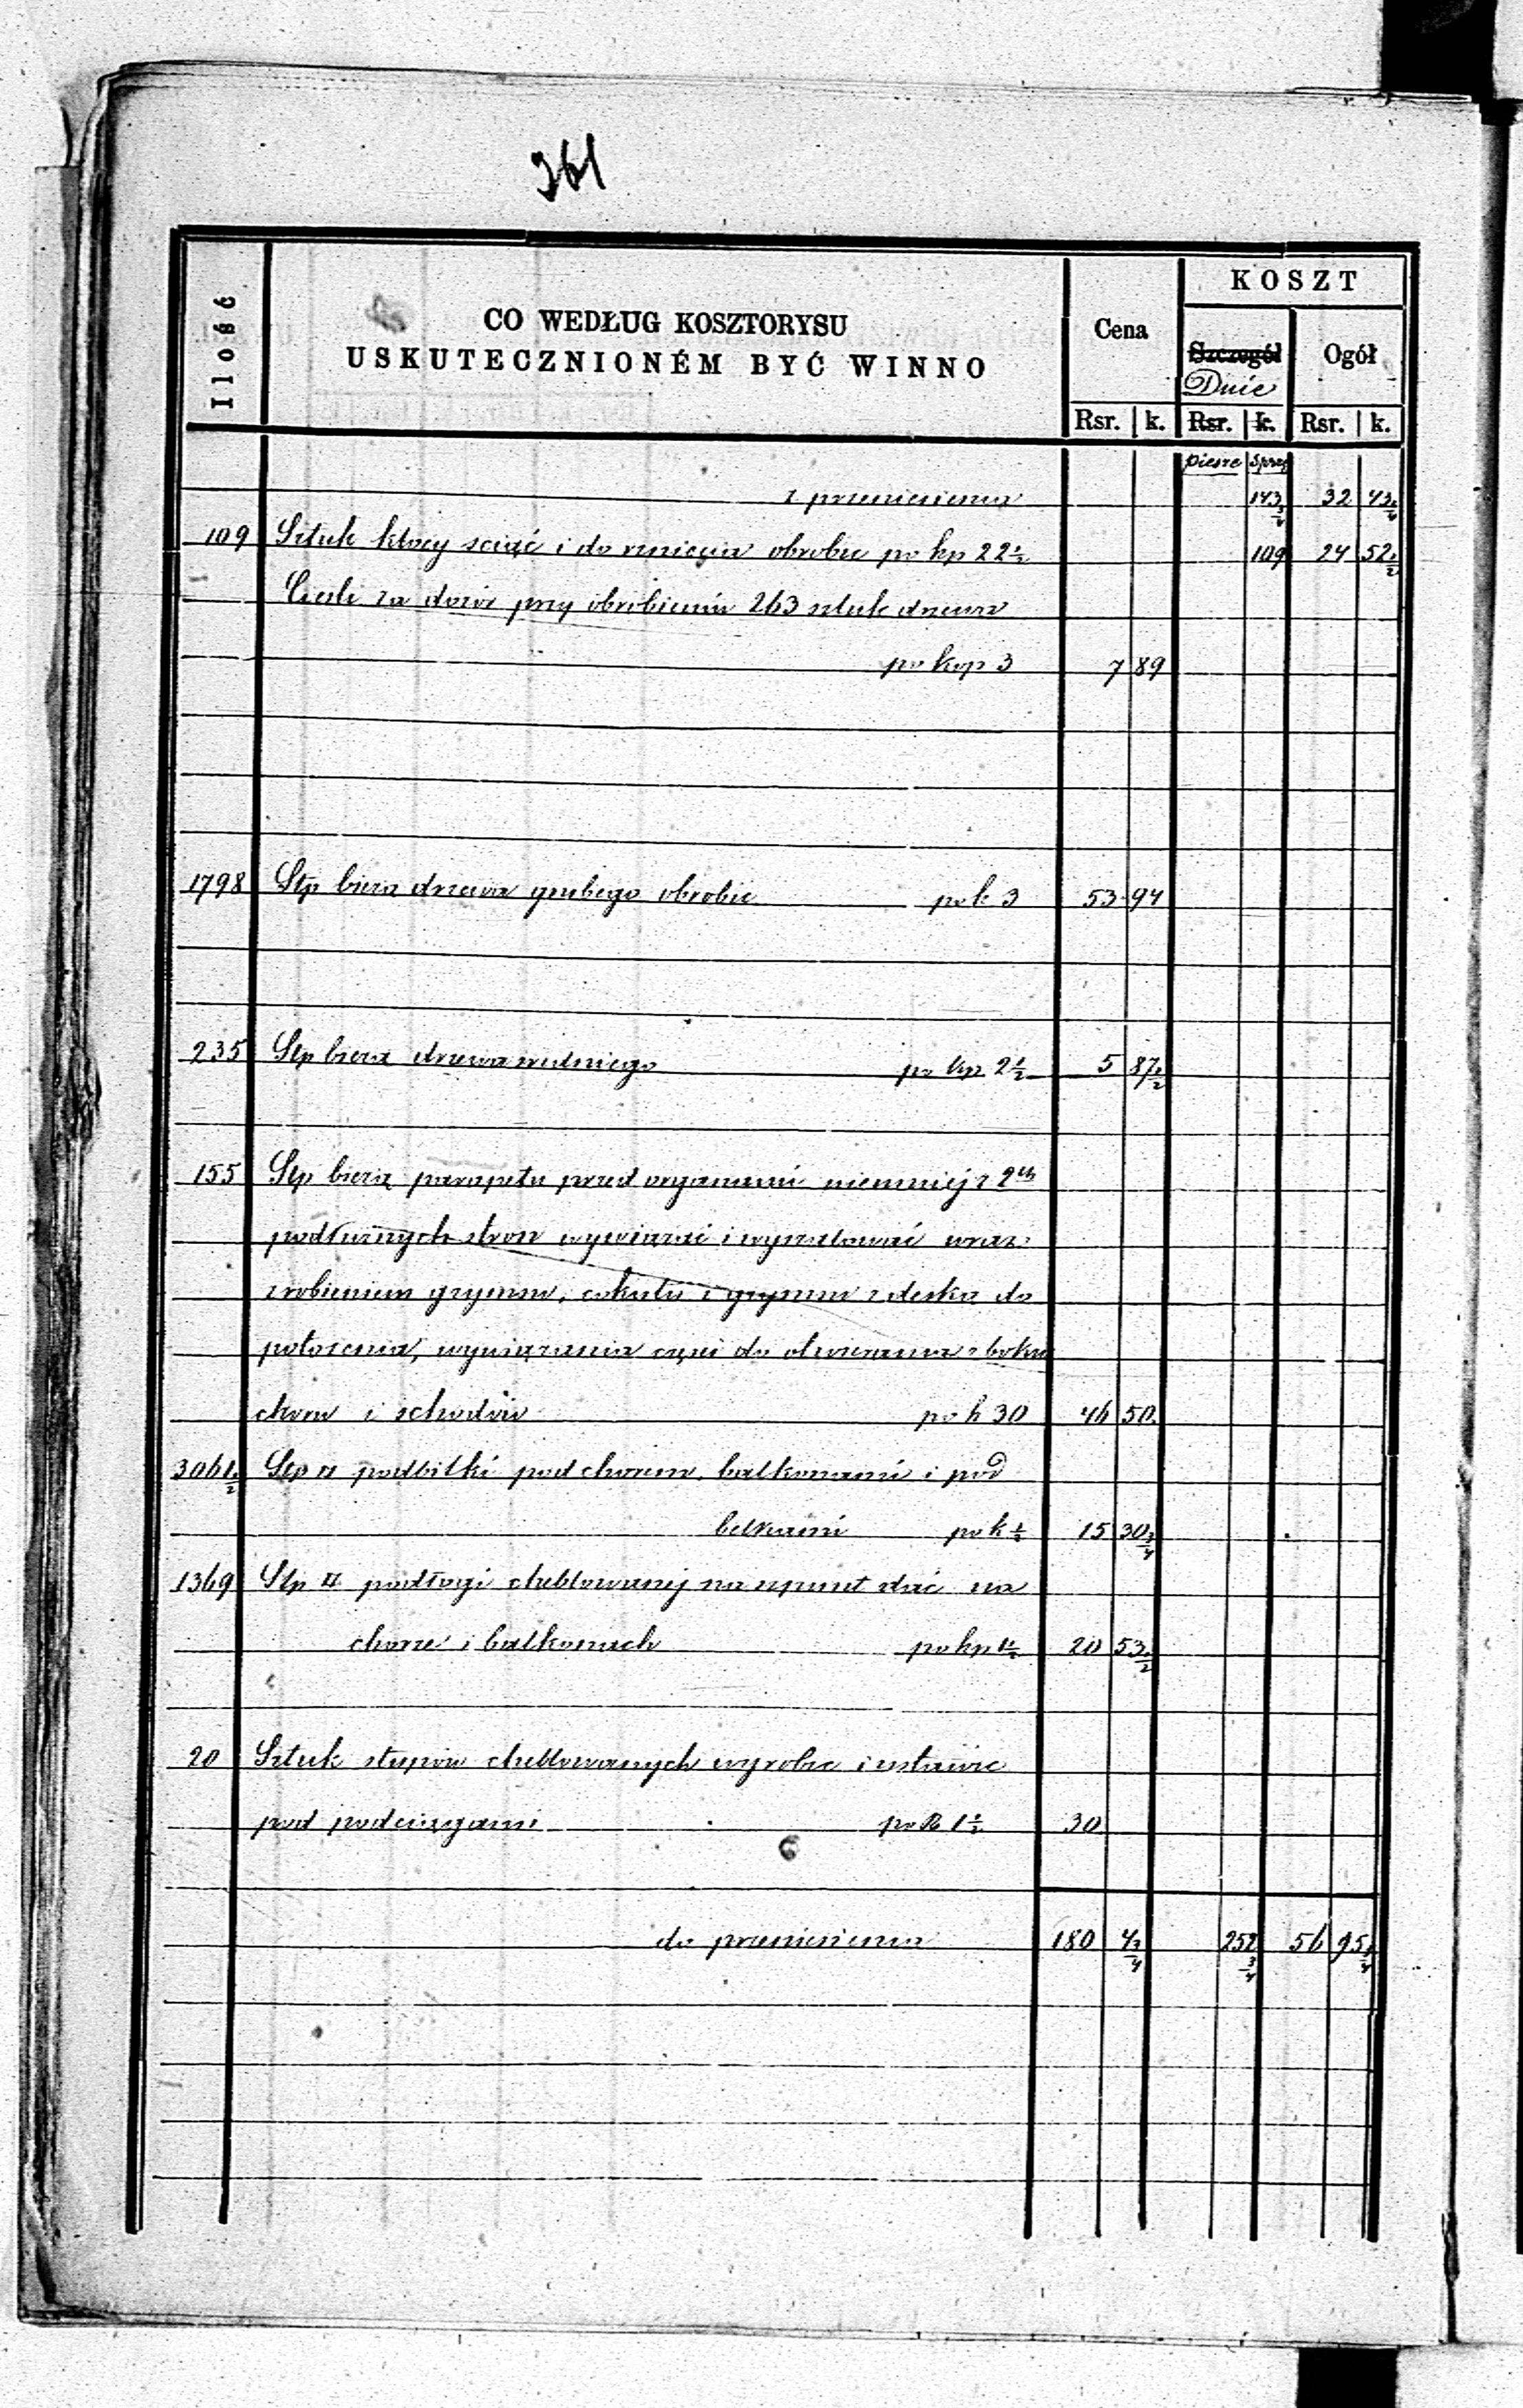 361
Ilość
CO WEDŁUG KOSZTORYSU
USKUTECZNIONÉM BYĆ WINNO
Cena
KOSZT
Szczegół
Dnie
Ogół
Rsr. k. Rsr. k. Rsr. k.
piesze sprzęż
z przeniesienia 143 3/4 32 43 3/4
109 Sztuk kłocy sciąć i do rznięcia obrobić po kp 22 1/2 109 24 52 1/2
Cieśli za dozór przy obrobieniu 263 sztuk drzewa
po kop 3 7 89
1798 Stp bieżą drzewa grubego obrobić po k 3 53 94
235 Stp bieżą drzewa średniego po kp 2 1/2 5 87 1/2
155 Stp bieżą parapetu przed organami niemniej z 2ch
podłużnych stron wywiązać i wyszalować wraz
z robieniem gzymsu, cokułu i gzymsu z deską do
położenia, wywiązania części do otwierania z boku
choru i schodów po k 30 46 50
3061 1/2 Stp □ podbitki pod chorem, balkonami i pod
belkami po k 1/2 15 30 3/4
1369 Stp □ podłogi cheblowanej na szpunt dać na
chorze i balkonach po kp 1 1/2 20 53 1/2
20 Sztuk słupów cheblowanych wyrobić i ustawić
pod podciągami po R 1 1/2 30
do przeniesienia 180 4 3/4 252 3/4 56 95 3/4